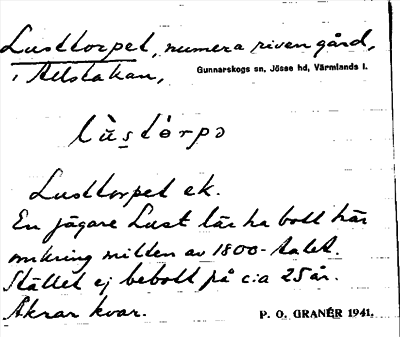 Lusttorpet, numera riven gård,
i Allstakan,
Gunnarskogs sn, Jösse hd, Värmlands l.
lùstórpə
Lusttorpet ek.
En jägare Lust lär ha bott här
omkring mitten av 1800-talet.
Stället ej bebott på c:a 25 år.
Åkrar kvar.
P. O. GRANÉR 1941.